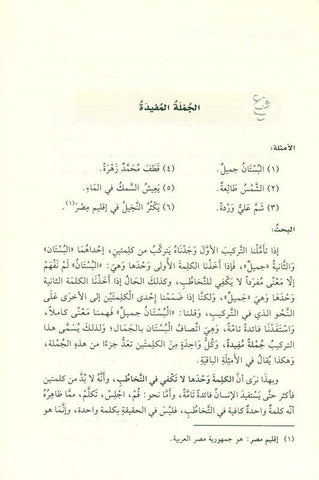 الجُمْلَةُ المُفِيدَةُ
الأمثلة:
(١) البُسْتَانُ جميلٌ.
(٢) الشَّمْسُ طالِعَةٌ.
(٣) شَمَّ عَلِيٌّ وَرْدةً.
(٤) قَطَفَ مُحَمَّدٌ زَهْرَةً.
(٥) يَعِيشُ السَّمَكُ في المَاءِ.
(٦) يَكْثُرُ النَّخِيلُ في إقليمِ مِصْرَ(١).
البحثُ:
إذا تأمَّلْنا التركيبَ الأوَّلَ وَجَدْنَاهُ يتركَّبُ من كلمتين، إحداهُمَا «البُسْتَان»
والثانيةُ «جميلٌ»، فإذا أَخَذْنَا الكلمةَ الأُولى وحْدَها وهيَ: «البُسْتَانُ» لَمْ نَفْهَمْ
إلَّا مَعْنًى مُفْرَداً لا يَكْفِي للتَّخاطُبِ، وكذلك الحالُ إذا أخذْنَا الكلمَة الثانية
وَحْدَهَا وهيَ «جَمِيلٌ»، ولكنَّا إذا ضَمَمْنا إحْدى الكلِمَتَيْن إلى الأخرَى عَلَى
النَّحْوِ الذي في التَّركِيبِ، وَقُلنا: «البُسْتَانُ جَمِيلٌ» فَهِمْنا معنًى كاملاً،
واسْتَفَدْنَا فائدةً تامَّةً، وَهِيَ اتِّصافُ البُسْتان بالجَمَالِ، ولذلك يُسَمَّى هذا
التركيبُ جُمْلَةً مُفِيدَةً، وَكُلُّ واحِدَةٍ مِنَ الكلِمَتَين تعدُّ جزءًا من هذهِ الجُمْلَة،
وهكذا يُقالُ في الأَمْثِلَةِ الباقيَةِ.
وبِهذا نرَى أنَّ الكلِمَةَ وَحْدَها لا تكْفي في التَّخاطُبِ، وأنَّهُ لا بُدَّ من كلمتين
فأكثر حتَّى يَسْتَفِيدَ الإنسانُ فائدةً تامَّةً، وأَمَّا نحو: قُمْ، اجْلِسْ، تَكَلَّمْ، ممَّا ظاهِرُهُ
أنَّه كلمةٌ واحدةٌ كافية في التَّخاطُبِ، فليْسَ في الحقيقة بكلمة واحدة، وإنَّما هو
(١) إقليم مصر: هو جمهورية مصر العربية.